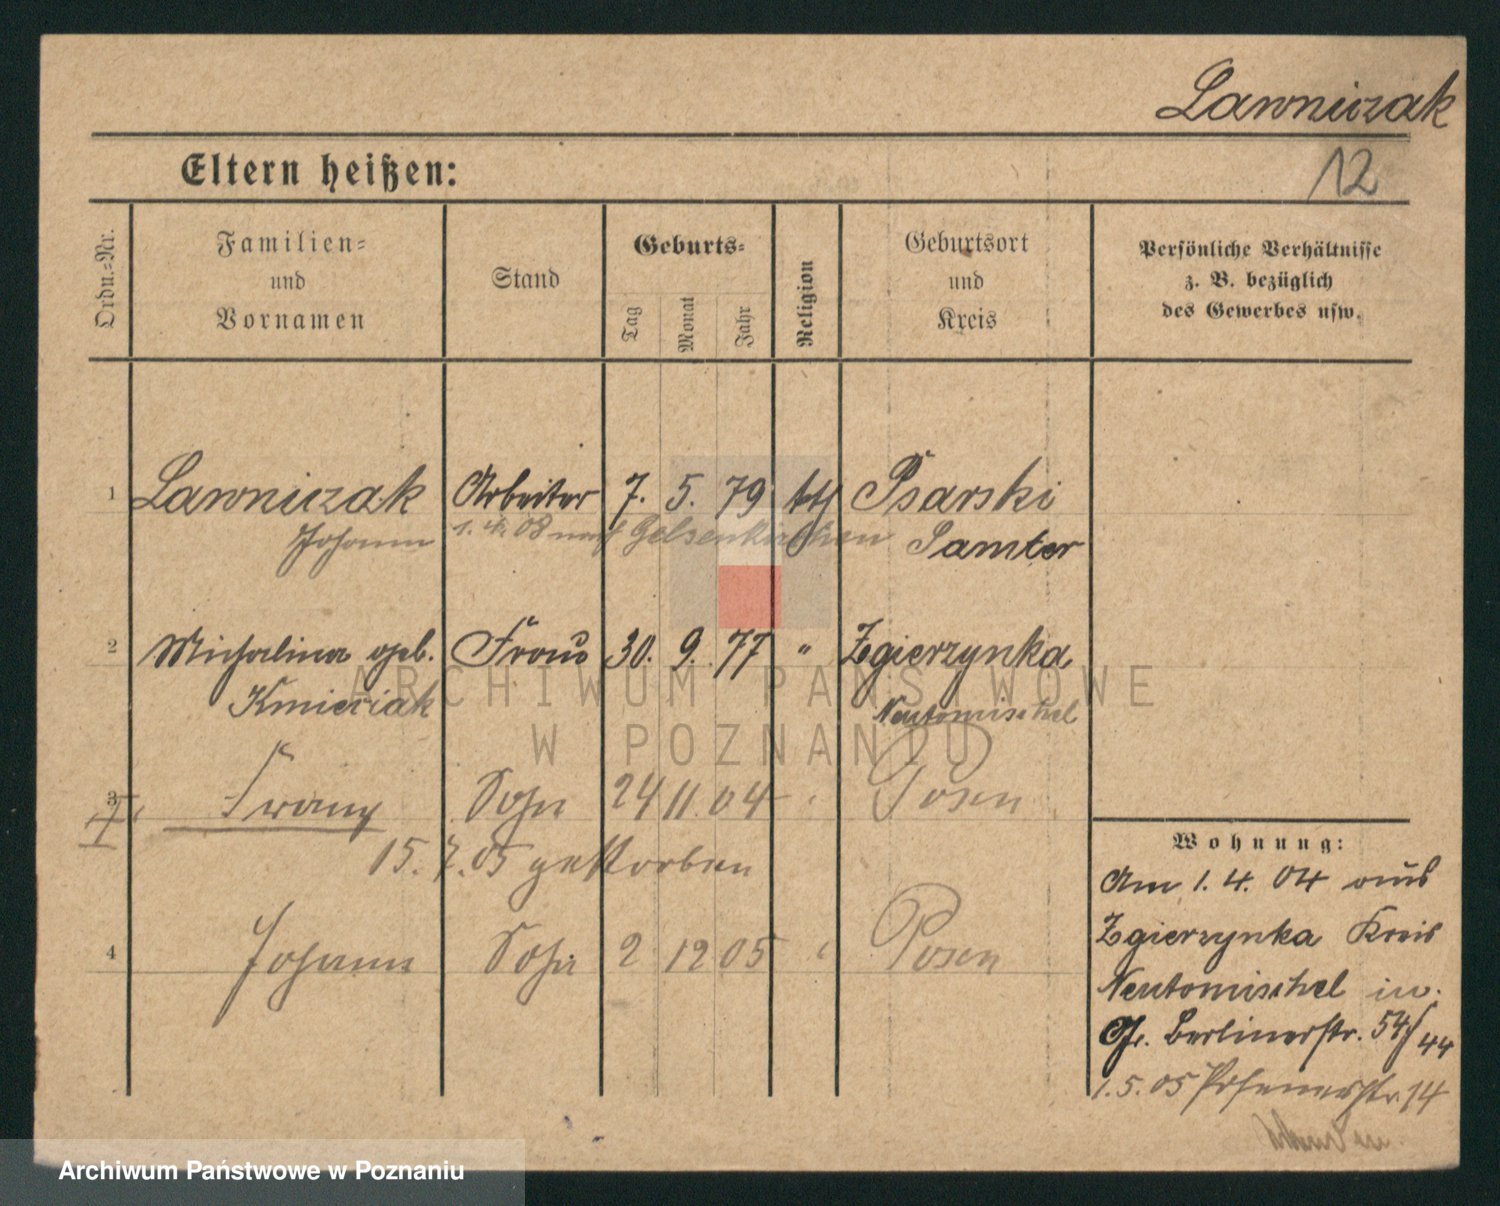 Lawniczak
12
Eltern heißen:
Ordn.-Nr.
Familien-
und
Vornamen
Stand
Geburts-
Tag
Monat
Jahr
Religion
Geburtsort
und
Kreis
Persönliche Verhältnisse
z. B. bezüglich
des Gewerbes usw.
1 Lawniczak Arbeiter 7. 5. 79 kth Psarski
Johann 1. 4. 08 nach Gelsenkirchen Samter
2 Michalina geb. Frau 30. 9. 77 " Zgierzynka
Kmieciak Neutomischel
3 Franz Sohn 24 11. 04 " Posen
15. 7. 05 gestorben
4 Johann Sohn 2 12 05 " Posen
Wohnung:
Am 1. 4. 04 aus
Zgierzynka Kreis
Neutomischel in
Gr. Berlinerstr. 54/44
1. 5. 05 Posenerstr. 14
ARCHIWUM PAŃSTWOWE
W POZNANIU
Archiwum Państwowe w Poznaniu